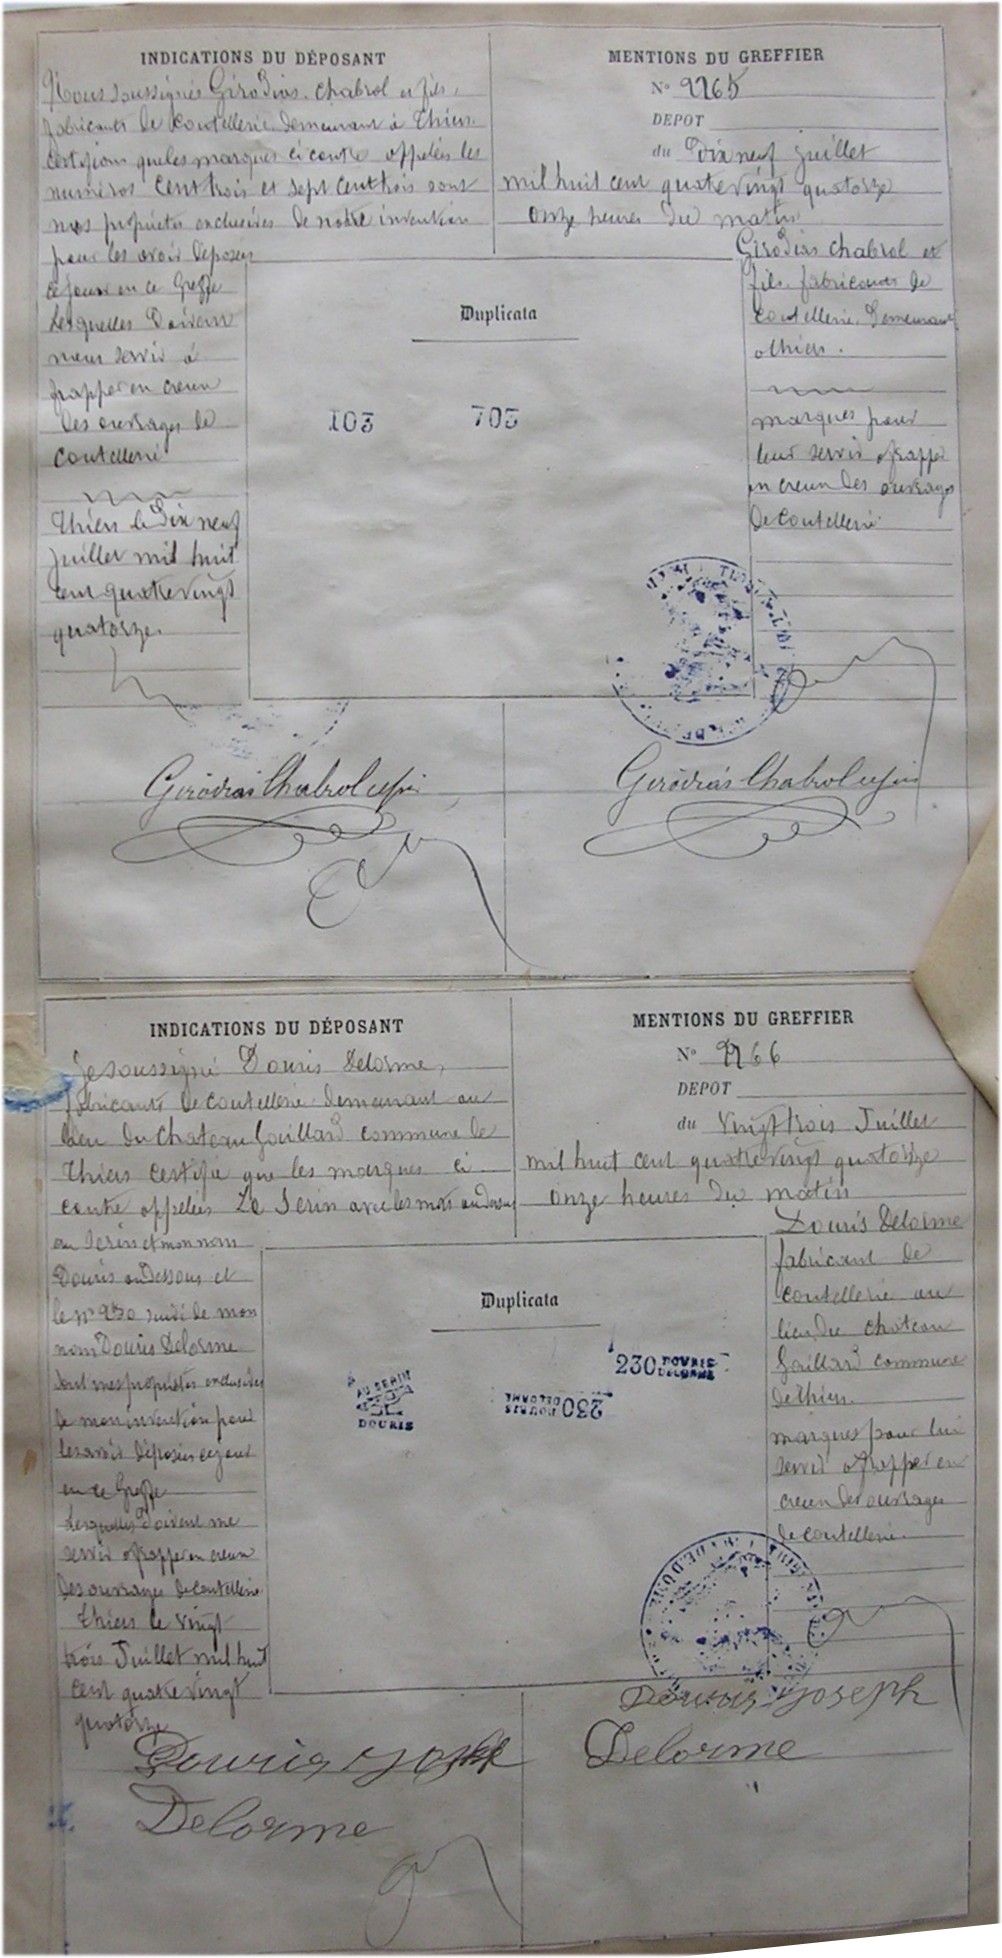 INDICATIONS DU DÉPOSANT
Nous soussignés Girodias Chabrol et fils,
fabricants de coutellerie demeurant à Thiers
certifions que les marques ci contre appelées les
numéros cent trois et sept cent trois sont
nos propriétés exclusives de notre invention
pour les avoir déposées
ce jour en ce Greffe
Lesquelles doivent
nous servir à
frapper en creux
des ouvrages de
coutellerie
Thiers le dix neuf
juillet mil huit
cent quatre vingt
quatorze.
MENTIONS DU GREFFIER
No 2265
DEPOT
du dix neuf juillet
mil huit cent quatre vingt quatorze
onze heures du matin
Girodias Chabrol et
fils fabricants de
coutellerie, demeurant
a thiers.
marques pour
leur servir a frapper
en creux des ouvrages
de coutellerie
Duplicata
103 703
Girodias Chabrol et fils
Girodias Chabrol et fils
INDICATIONS DU DÉPOSANT
Je soussigné Douris Delorme,
fabricant de coutellerie demeurant au
lieu du Chateau Gaillard commune de
Thiers certifie que les marques ci
contre appelées Le Serin avec les mots au dessus
au serin et mon nom
Douris au dessous et
le no 230 suivi de mon
nom Douris Delorme
sont mes propriétés exclusives
de mon invention pour
les avoir déposées ce jour
en ce Greffe
Lesquelles doivent me
servir a frapper en creux
des ouvrages de coutellerie
Thiers le vingt
trois Juillet mil huit
cent quatre vingt
quatorze
MENTIONS DU GREFFIER
No 2266
DEPOT
du vingt trois Juillet
mil huit cent quatre vingt quatorze
onze heures du matin
Douris Delorme
fabricant de
coutellerie au
lieu du chateau
Gaillard commune
de thiers.
marques pour lui
servir a frapper en
creux des ouvrages
de coutellerie
Duplicata
AU SERIN
DOURIS
230 DOURIS
DELORME
230 DOURIS
DELORME
Douris Joseph
Delorme
Douris Joseph
Delorme